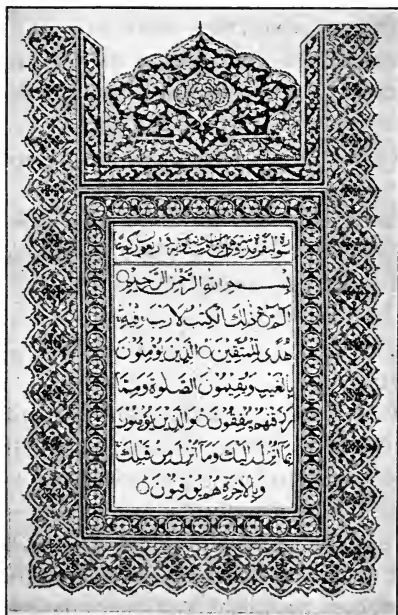 سورة البقرة مائتان وست وثمانون آية
بسم الله الرحمن الرحيم
الٓمٓ ذٰلِكَ الْكِتٰبُ لَا رَيْبَ فِيهِ
هُدًى لِلْمُتَّقِينَ الَّذِينَ يُؤْمِنُونَ
بِالْغَيْبِ وَيُقِيمُونَ الصَّلٰوةَ وَمِمَّا
رَزَقْنٰهُمْ يُنْفِقُونَ وَالَّذِينَ يُؤْمِنُونَ
بِمَا اُنْزِلَ اِلَيْكَ وَمَا اُنْزِلَ مِنْ قَبْلِكَ
وَبِالْاٰخِرَةِ هُمْ يُوقِنُونَ